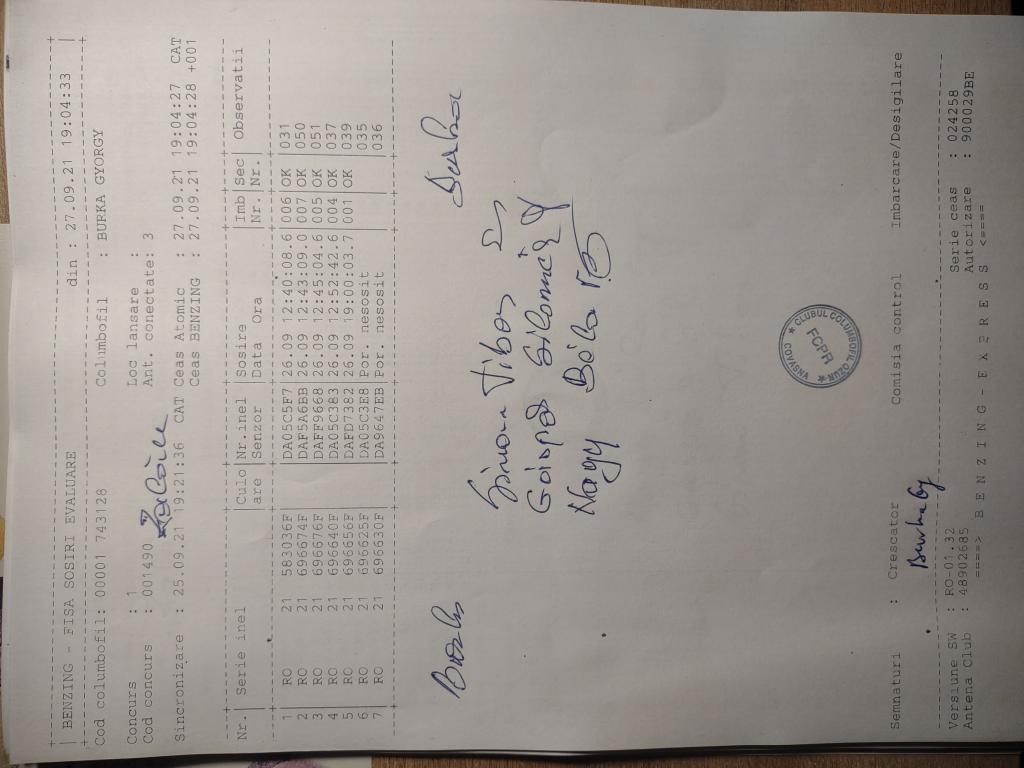 BENZING - FISA SOSIRI EVALUARE din : 27.09.21 19:04:33
Cod columbofil: 00001 743128 Columbofil : BURKA GYORGY
Concurs : 1 Loc lansare :
Cod concurs : 001490 Ant. conectate: 3
Sincronizare : 25.09.21 19:21:36 CAT Ceas Atomic : 27.09.21 19:04:27 CAT
Ceas BENZING : 27.09.21 19:04:28 +001
Nr.| Serie inel |Culo|Nr.inel |Sosire |Imb|Sec| Observatii
|are |Senzor |Data Ora |Nr.|Nr.|
1 RO 21 583036F DA05C5F7 26.09 12:40:08.6 006 OK 031
2 RO 21 696674F DAF5A6BB 26.09 12:43:09.0 007 OK 050
3 RO 21 696676F DAFF9668 26.09 12:45:04.6 005 OK 051
4 RO 21 696640F DA05C383 26.09 12:52:42.6 004 OK 037
5 RO 21 696656F DAFD7382 26.09 19:00:03.7 001 OK 039
6 RO 21 696625F DA05C3E8 Por. nesosit 035
7 RO 21 696630F DA9647EB Por. nesosit 036
Simon Tibor
Nagy Béla
CLUBUL COLUMBOFIL OZUN
FCPR
COVASNA
Semnaturi : Crescator Comisia control Imbarcare/Desigilare
Versiune SW : RO-01.32 Serie ceas : 024258
Antena Club : 48902685 Autorizare : 9000029BE
====> B E N Z I N G - E X P R E S S <====